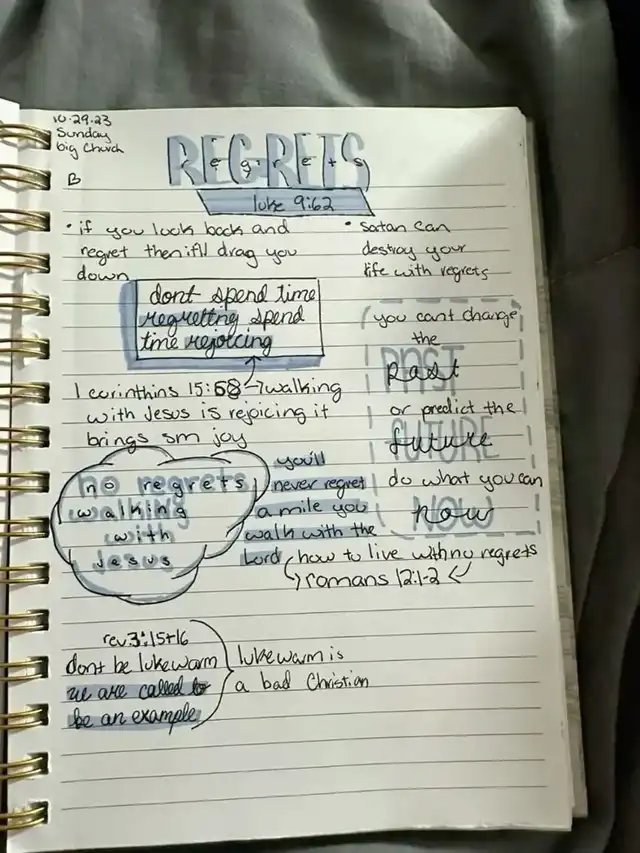 10.29.23
Sunday
big Church
B
REGRETS
regrets
luke 9:62
• if you look back and
regret then it'll drag you
down
• satan can
destroy your
life with regrets
dont spend time
regretting spend
time rejoicing
1 corinthins 15:58 → walking
with Jesus is rejoicing it
brings sm joy
you cant change
the
PAST
past
or predict the
FUTURE
future
do what you can
NOW
now
no regrets
walking
with
Jesus
you'll
never regret
a mile you
walk with the
Lord
how to live with no regrets
romans 12:1-2
rev 3:15+16
dont be lukewarm
we are called to
be an example
lukewarm is
a bad Christian